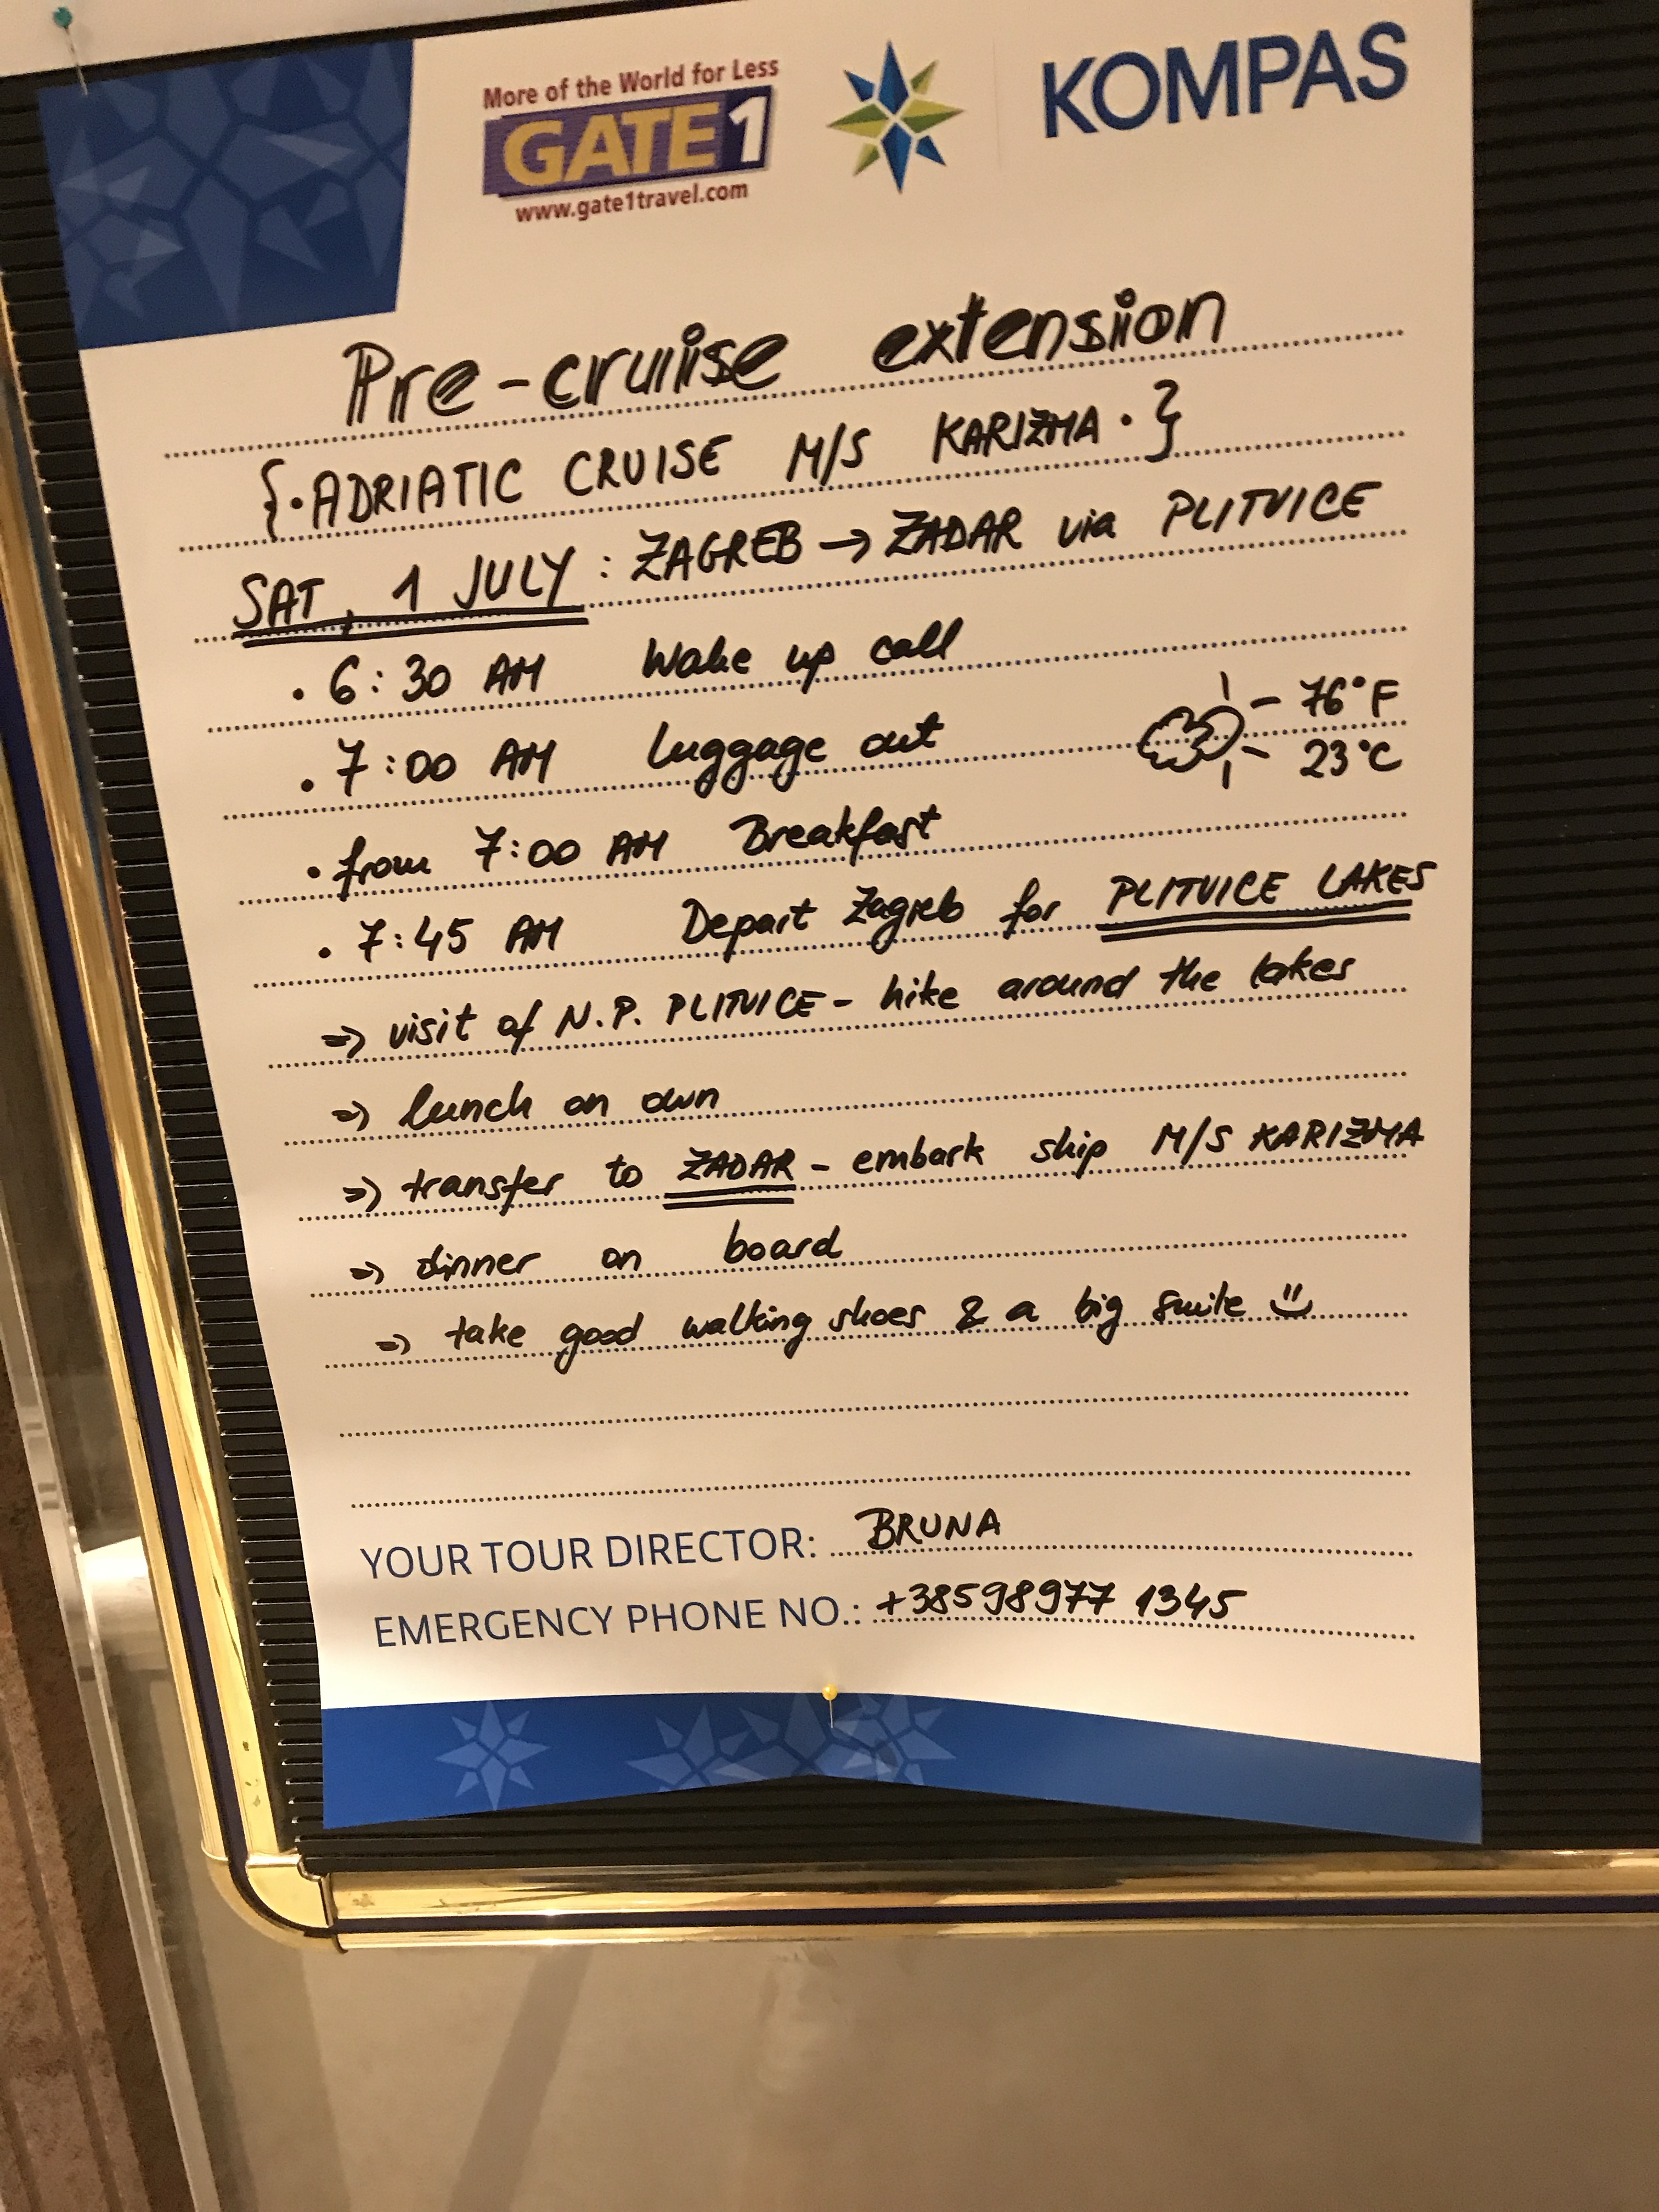 More of the World for Less
GATE 1
www.gate1travel.com
KOMPAS
Pre-cruise extension
{·ADRIATIC CRUISE M/S KARIZMA·}
SAT, 1 JULY: ZAGREB → ZADAR via PLITVICE
· 6:30 AM Wake up call
· 7:00 AM Luggage out
76°F
23°C
· from 7:00 AM Breakfast
· 7:45 AM Depart Zagreb for PLITVICE LAKES
⇒ visit of N.P. PLITVICE - hike around the lakes
⇒ lunch on own
⇒ transfer to ZADAR - embark ship M/S KARIZMA
⇒ dinner on board
⇒ take good walking shoes & a big smile ☺
YOUR TOUR DIRECTOR: BRUNA
EMERGENCY PHONE NO.: +38598977 1345